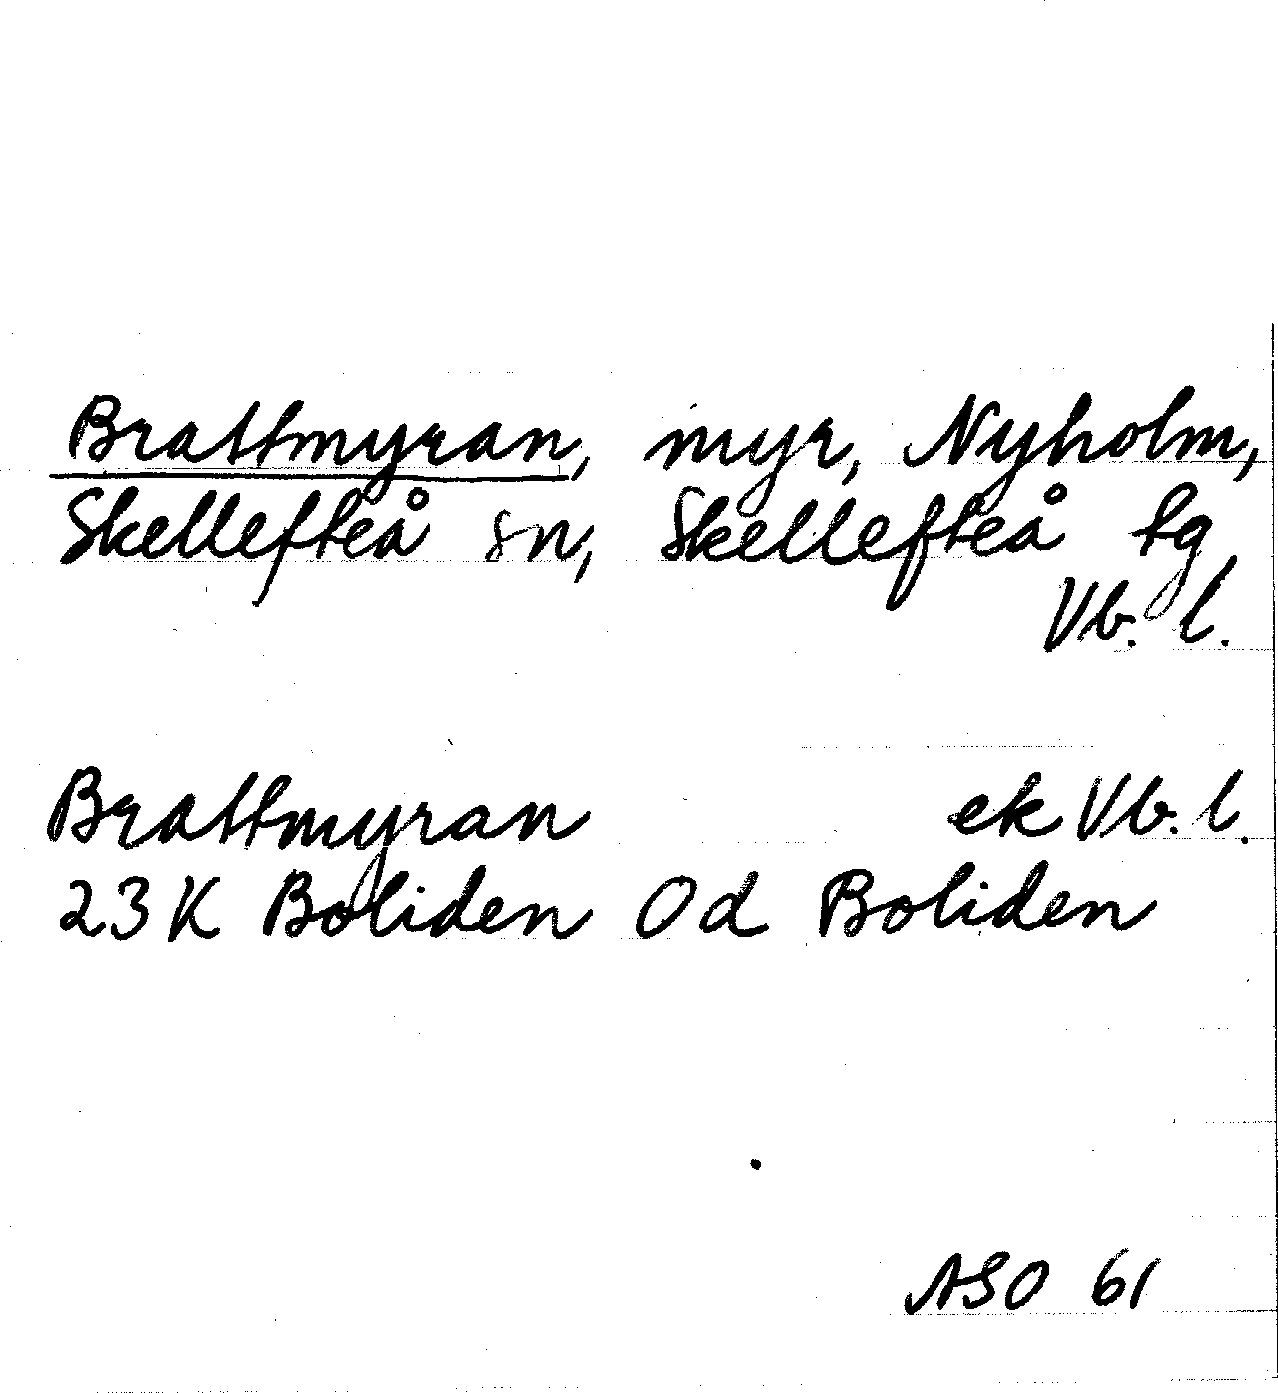 Brattmyran, myr, Nyholm,
Skellefteå sn, Skellefteå tg
Vb. l.
Brattmyran ek Vb. l.
23K Boliden Od Boliden
ASO 61